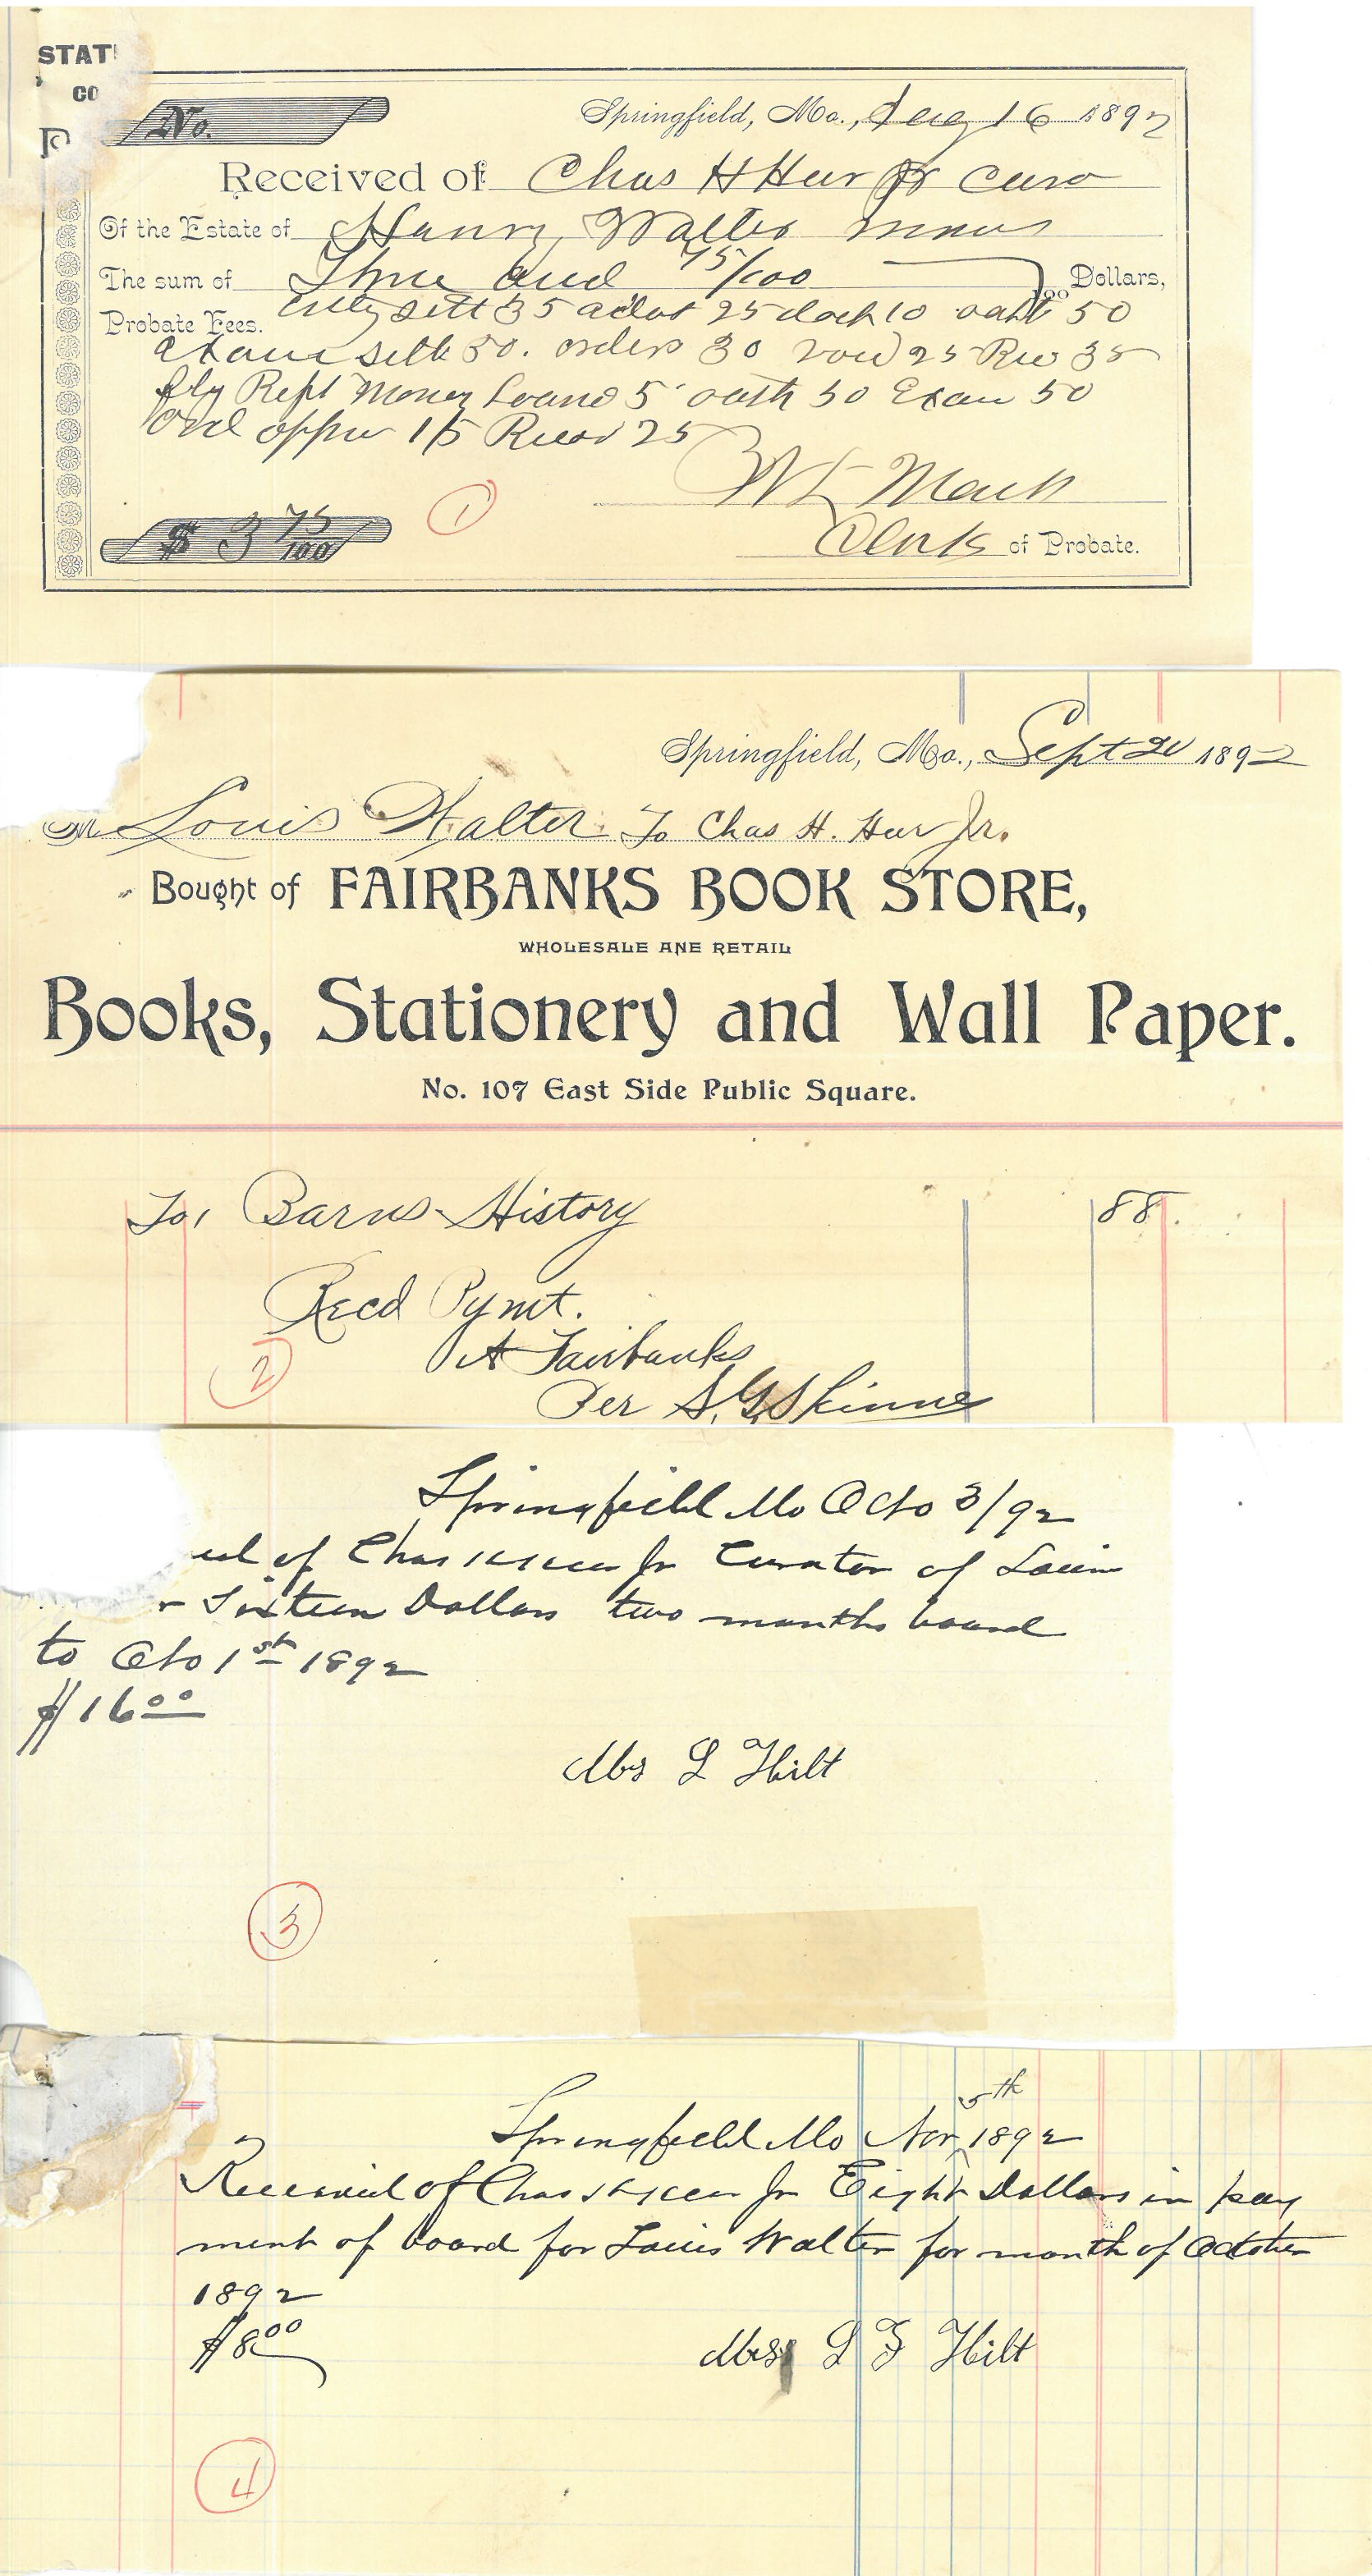 STAT
CO
No.
Springfield, Mo., Aug 16 1892
Received of Chas H Heer Jr
Of the Estate of Walter
The sum of Three and 75/100 Dollars,
Probate Fees. sett 35 25 10 oath 50
sett 50. orders 30 25 35
Rept Money 5 oath 50 Exam 50
15 Record 25
Clerk of Probate.
$ 3 75/100
1
Springfield, Mo., Sept 20 1892
M Louis Walter To Chas H. Heer Jr.
Bought of FAIRBANKS BOOK STORE,
WHOLESALE ANE RETAIL
Books, Stationery and Wall Paper.
No. 107 East Side Public Square.
To, Barns History 88.
Recd Pymt.
A Fairbanks
Per S. G. Skinner
2
Springfield Mo Octo 3/92
of Chas H Heer Jr Curator of Louis
Sixteen Dollars two months board
to Octo 1st 1892
$16 00
Mrs L Hilt
3
Springfield Mo Nov 5th 1892
Received of Chas H Heer Jr Eight Dollars in pay
ment of board for Louis Walter for month of October
1892
$8 00
Mrs L F Hilt
4